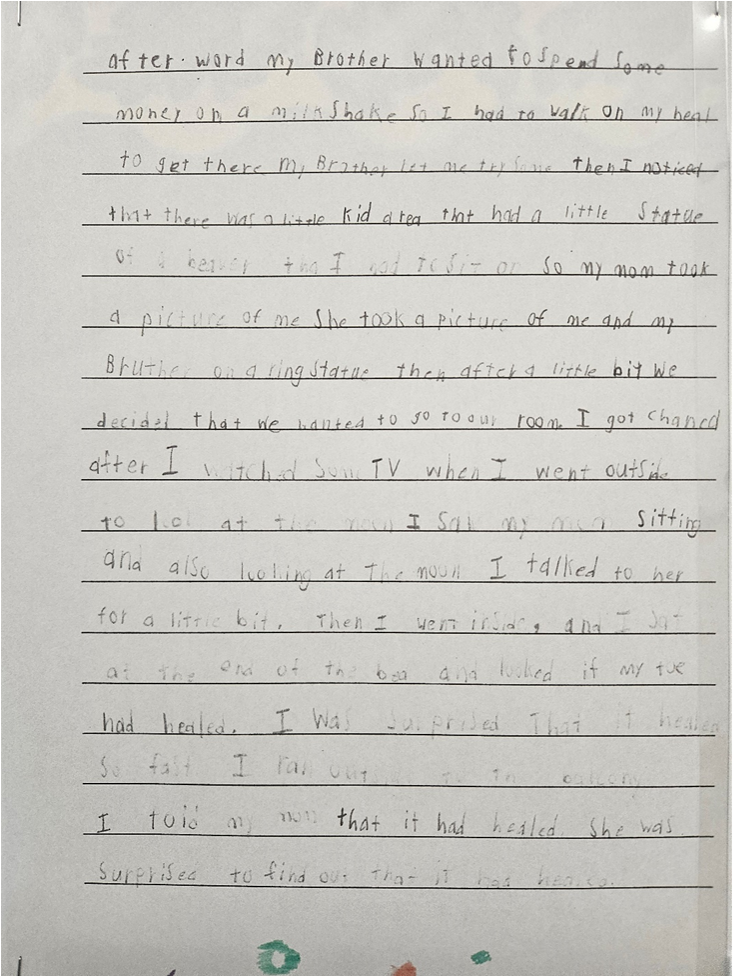 after. word my Brother wanted to spend some
money on a milkshake so I had to walk on my heal
to get there my Brother let me try some then I noticed
that there was a little kid area that had a little Statue
of a beaver tha I had to sit on so my mom took
a picture of me She took a picture of me and my
Bruther on a ring Statue then after a little bit we
decided that we wanted to go to our room I got chaned
after I watched some TV when I went outside
to look at the moon I saw my mom sitting
and also looking at the moon I talked to her
for a little bit. Then I went inside, and I sat
at the end of the bed and looked if my toe
had healed. I was surprised That it healed
so fast I ran out to balcony
I told my mom that it had healed. She was
surprised to find out that it had healed.